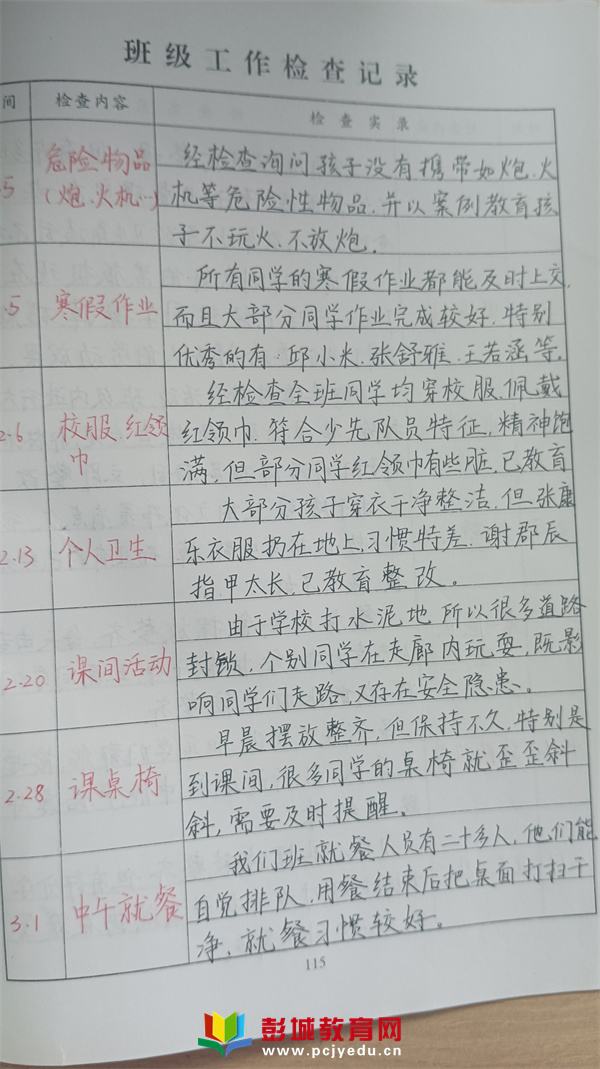 班级工作检查记录
间 检查内容 检查实录
.5 危险物品
(炮、火机…)
经检查询问孩子没有携带如炮、火
机等危险性物品.并以案例教育孩
子不玩火、不放炮.
.5 寒假作业
所有同学的寒假作业都能及时上交,
而且大部分同学作业完成较好.特别
优秀的有:邱小米.张舒雅.王若涵等.
2.6 校服.红领
巾
经检查全班同学均穿校服.佩戴
红领巾.符合少先队员特征,精神饱
满,但部分同学红领巾有些脏,已教育
2.13 个人卫生
大部分孩子穿衣干净整洁,但张康
乐衣服扔在地上,习惯特差.谢郡辰
指甲太长.已教育整改。
2.20 课间活动
由于学校打水泥地 所以很多道路
封锁,个别同学在走廊内玩耍,既影
响同学们走路,又存在安全隐患。
2.28 课桌椅
早晨摆放整齐,但保持不久,特别是
到课间,很多同学的桌椅就歪歪斜
斜,需要及时提醒。
3.1 中午就餐
我们班就餐人员有二十多人,他们能
自觉排队,用餐结束后把桌面打扫干
净,就餐习惯较好。
115
彭城教育网
www.pcjyedu.cn